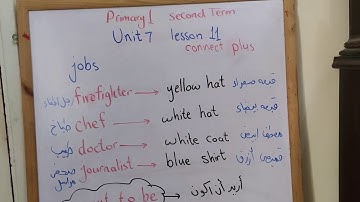 Primary 1 second Term
Unit 7 lesson 11
connect plus
jobs
رجل اطفاء firefighter → yellow hat قبعه صفراء
طباخ chef → white hat قبعه بيضاء
طبيب doctor → white coat معطف ابيض
صحفى journalist → blue shirt قميص أزرق
مراسل
to be → أريد أن أكون